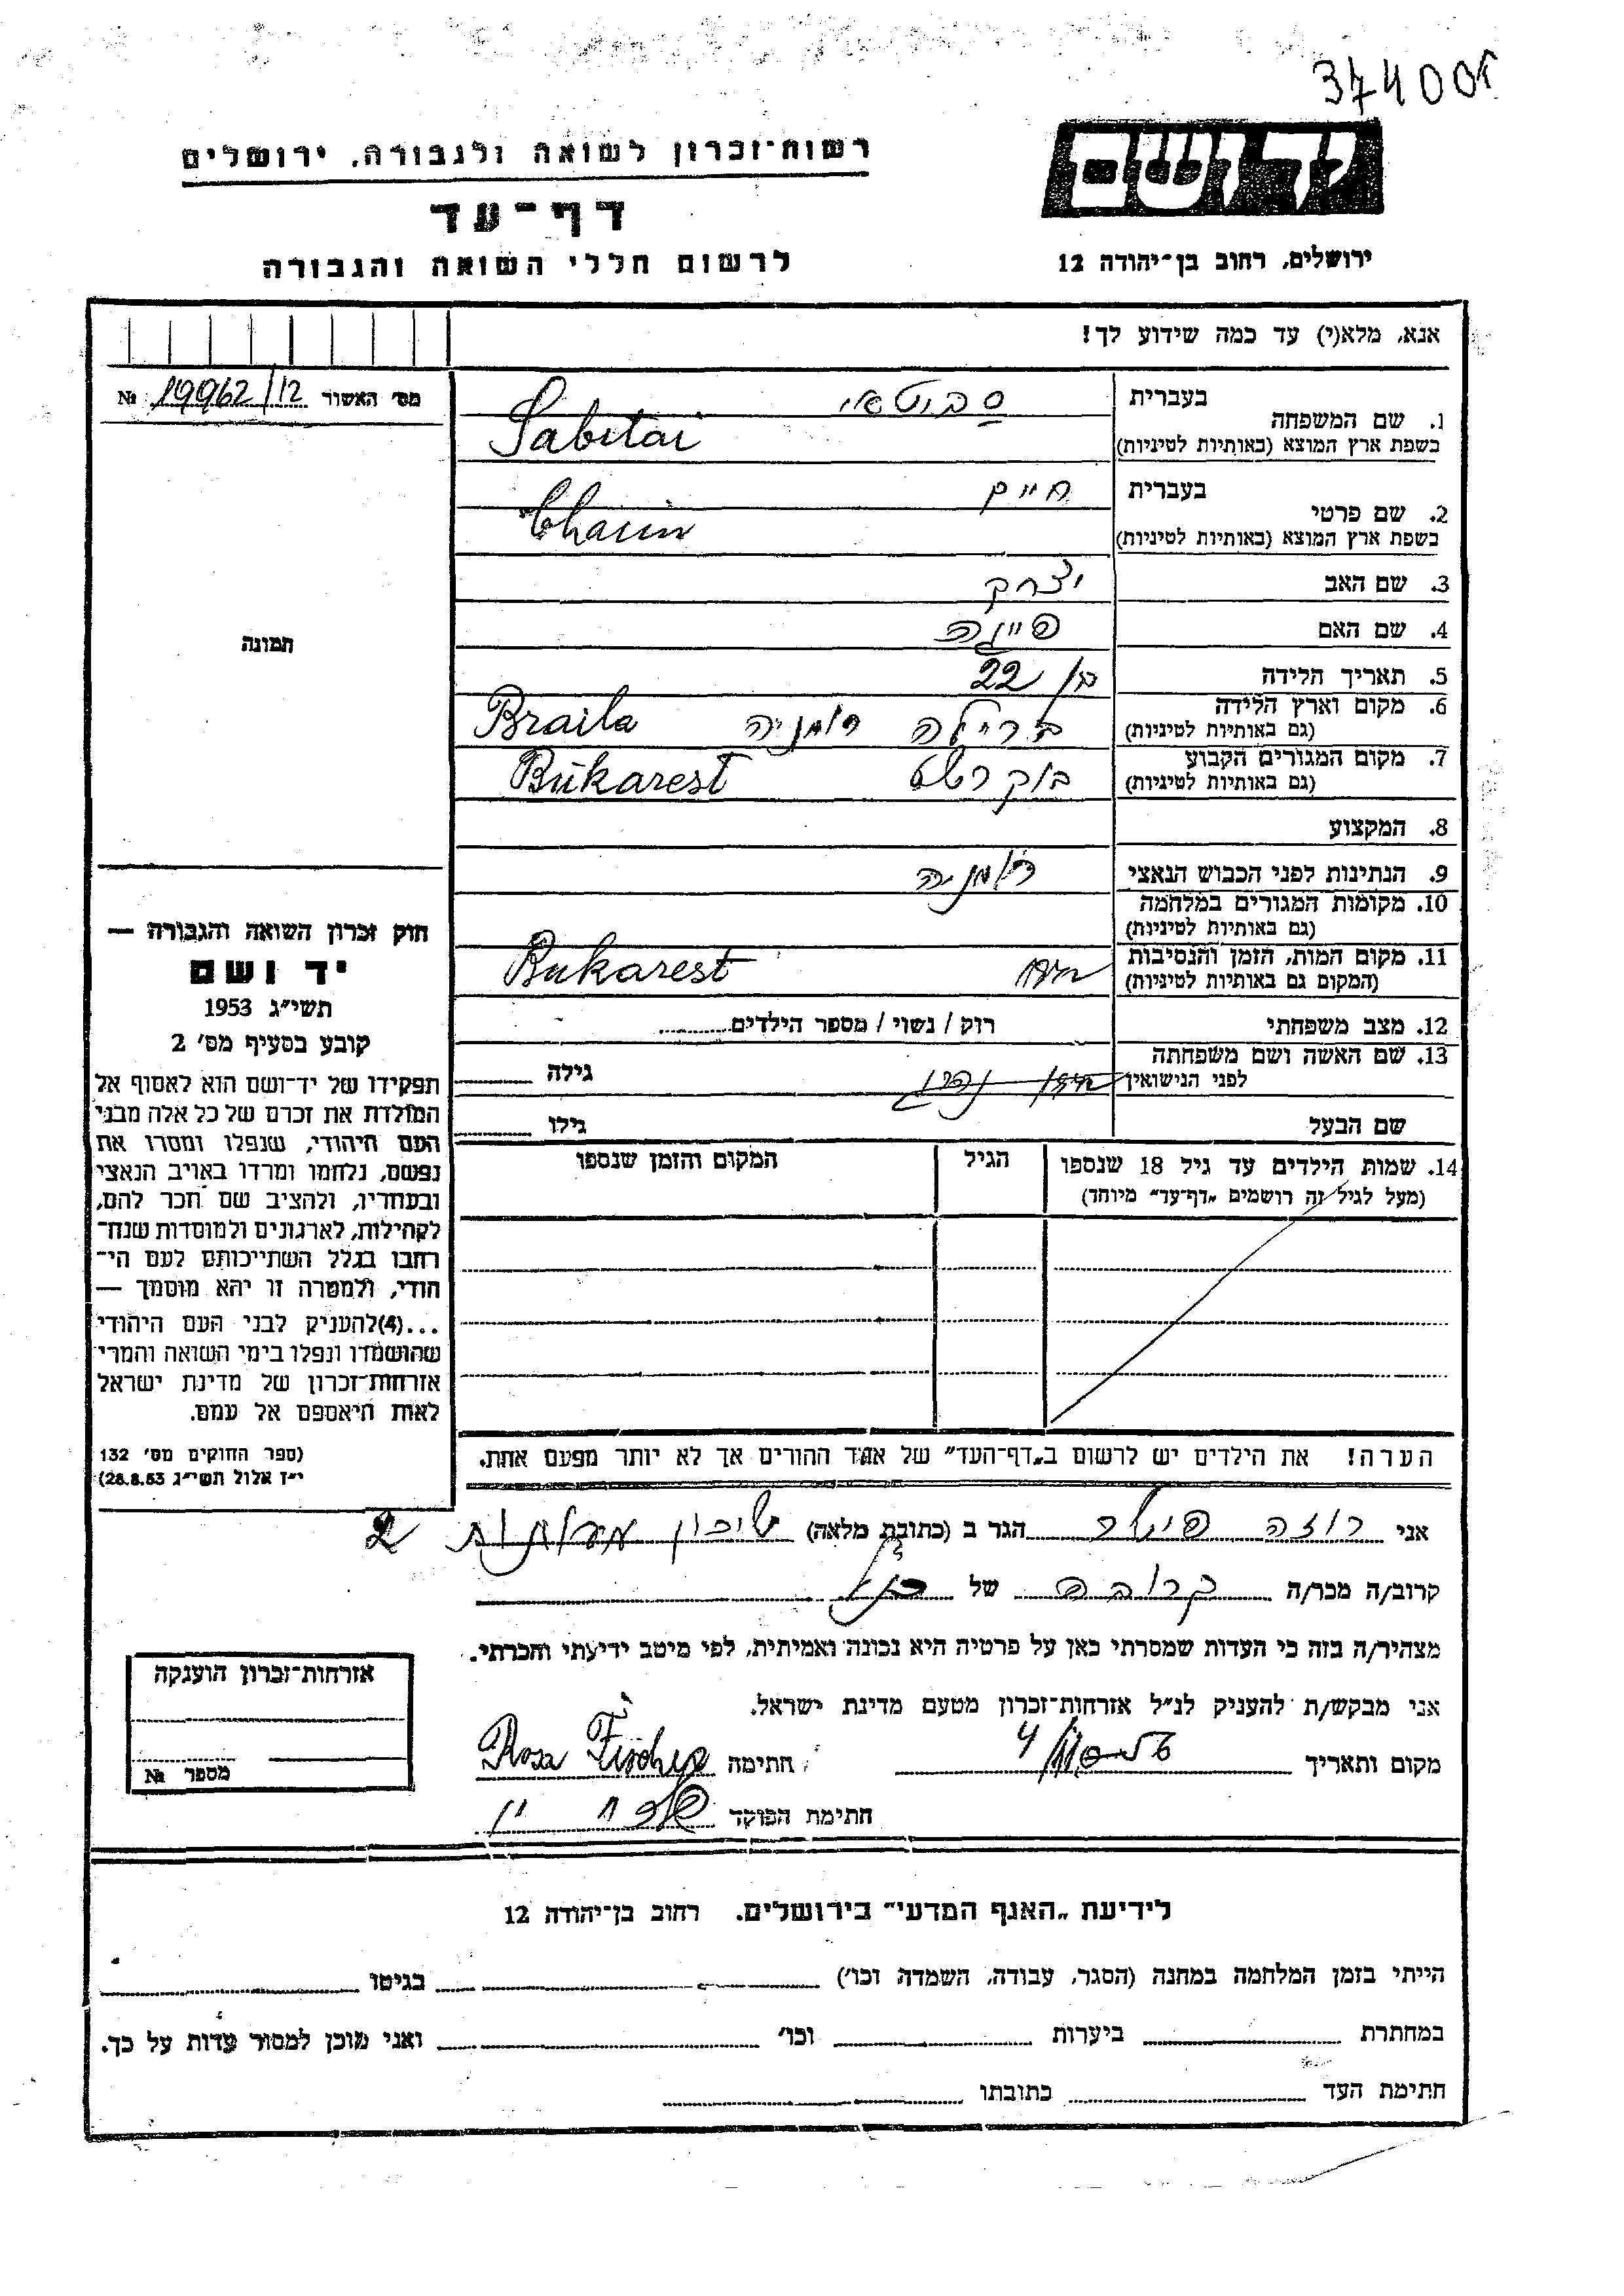 374005
רשות־זכרון לשואה ולגבורה, ירושלים
יד ושם
דף־עד
לרשום חללי השואה והגבורה
ירושלים, רחוב בן־יהודה 12
אנא, מלא(י) עד כמה שידוע לך!
מס׳ האשור 19962/12 №
בעברית סבוטאי
1. שם המשפחה
בשפת ארץ המוצא (באותיות לטיניות) Sabitai
בעברית חיים
2. שם פרטי
בשפת ארץ המוצא (באותיות לטיניות) Chaim
3. שם האב יצחק
4. שם האם פייגה
תמונה
5. תאריך הלידה בן 22
6. מקום וארץ הלידה
(גם באותיות לטיניות) ברילה רומניה Braila
7. מקום המגורים הקבוע
(גם באותיות לטיניות) בוקרשט Bukarest
8. המקצוע
9. הנתינות לפני הכבוש הנאצי רומניה
10. מקומות המגורים במלחמה
(גם באותיות לטיניות)
11. מקום המות, הזמן והנסיבות
(המקום גם באותיות לטיניות) Bukarest
12. מצב משפחתי רוק / נשוי / מספר הילדים
13. שם האשה ושם משפחתה
לפני הנישואין גילה
שם הבעל גילו
14. שמות הילדים עד גיל 18 שנספו
(מעל לגיל זה רושמים „דף־עד״ מיוחד)
הגיל
המקום והזמן שנספו
חוק זכרון השואה והגבורה —
יד ושם
תשי״ג 1953
קובע בסעיף מס׳ 2
תפקידו של יד־ושם הוא לאסוף אל
המולדת את זכרם של כל אלה מבני
העם היהודי, שנפלו ומסרו את
נפשם, נלחמו ומרדו באויב הנאצי
ובעוזריו, ולהציב שם וזכר להם,
לקהילות, לארגונים ולמוסדות שנח־
רבו בגלל השתייכותם לעם הי־
הודי, ולמטרה זו יהא מוסמך —
...(4)להעניק לבני העם היהודי
שהושמדו ונפלו בימי השואה והמרי
אזרחות־זכרון של מדינת ישראל
לאות היאספם אל עמם.
(ספר החוקים מס׳ 132
י״ז אלול תשי״ג 28.8.53)
הערה! את הילדים יש לרשום ב„דף־העד״ של אחד ההורים אך לא יותר מפעם אחת.
אני רוזה פישר הגר ב (כתובת מלאה) שיכון 2
קרוב/ה מכר/ה קרובה של
מצהיר/ה בזה כי העדות שמסרתי כאן על פרטיה היא נכונה ואמיתית, לפי מיטב ידיעתי והכרתי.
אני מבקש/ת להעניק לנ״ל אזרחות־זכרון מטעם מדינת ישראל.
מקום ותאריך חתימה Rosa Fischer
חתימת הפוקד
אזרחות־זכרון הוענקה
מספר №
לידיעת „האגף המדעי״ בירושלים. רחוב בן־יהודה 12
הייתי בזמן המלחמה במחנה (הסגר, עבודה, השמדה וכו׳) בגיטו
במחתרת ביערות וכו׳ ואני מוכן למסור עדות על כך.
חתימת העד כתובתו